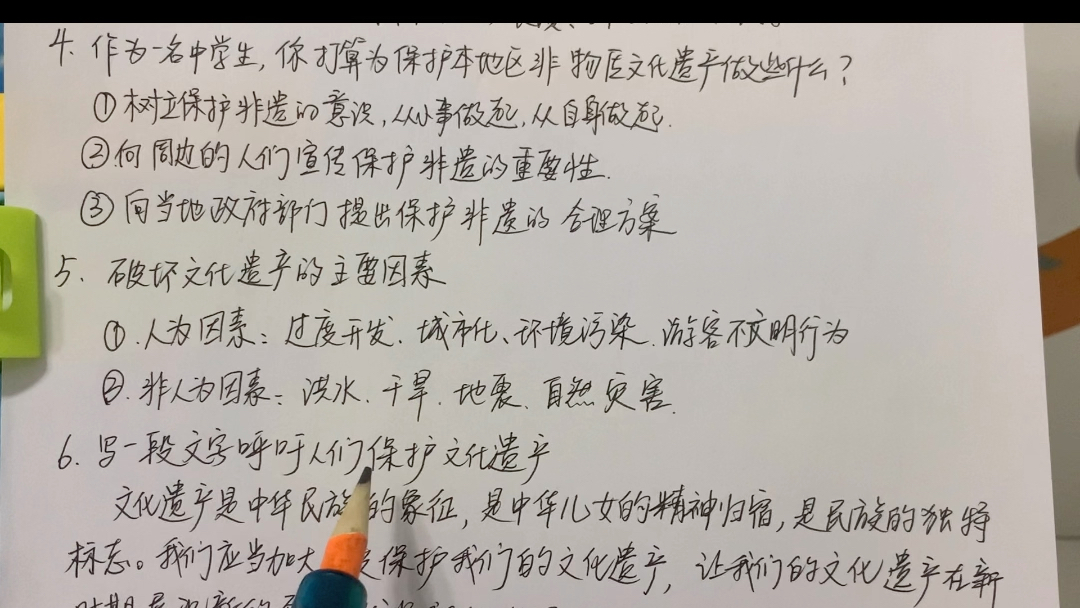 4. 作为一名中学生,你打算为保护本地区非物质文化遗产做些什么?
①树立保护非遗的意识,从小事做起,从自身做起.
②向周边的人们宣传保护非遗的重要性.
③向当地政府部门提出保护非遗的合理方案
5. 破坏文化遗产的主要因素
①.人为因素:过度开发.城市化、环境污染.游客不文明行为
②.非人为因素:洪水.干旱.地震.自然灾害.
6. 写一段文字呼吁人们保护文化遗产
文化遗产是中华民族的象征,是中华儿女的精神归宿,是民族的独特
标志。我们应当加大 保护我们的文化遗产,让我们的文化遗产在新